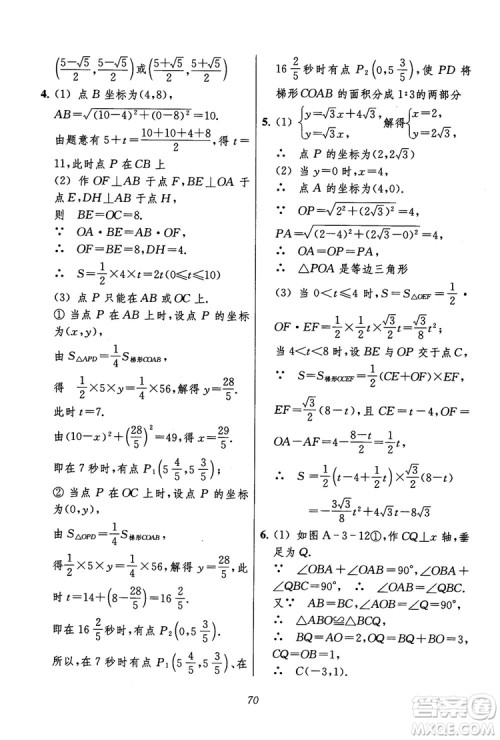 (5-√5/2, 5+√5/4)或(5+√5/2, 5-√5/4)
4. (1) 点 B 坐标为(4,8),
AB=√((10-4)²+(0-8)²)=10.
由题意有 5+t=(10+10+4+8)/2, 得 t=
11,此时点 P 在 CB 上
(2) 作 OF⊥AB 于点 F,DE⊥AB 于
点 E,DH⊥AB 于
则 BE=OC=8.
∵ OA·BE=AB·OF,
∴ OF=BE=8,DE=4.
∴ S=1/2×4×t=2t(0≤t≤10).
(3) 点 P 只能在 AB 或 OC 上.
① 当点 P 在 AB 上时,设点 P 的坐标
为(x,y),
由 S△APD=1/4S梯形COAB,
得 1/2×5×y=1/4×56,y=28/5.
此时 t=7.
由(10-x)²+(28/5)²=49,得
即在 7 秒时,有点 P₁(5 4/5,5 3/5).
② 当点 P 在 OC 上时,设点 P 的坐标
为(0,y),
由 S△OPD=1/4S梯形COAB,
得 1/2×5×y=1/4×56,y=28/5.
此时 t=14+(8-28/5)=16 2/5.
即在 16 2/5 秒时,有点 P₂(0,5 3/5).
所以,在 7 秒时有点 P₁(5 4/5,5 3/5)、在
16 2/5 秒时有点 P₂(0,5 3/5),使 PD 将
梯形 COAB 的面积分成 1:3 的两部分
5. (1) { y=√3x+4√3, 解得
∴ 点 P 的坐标为(2,2√3)
(2) 当 y=0 时,x=4.
∴ 点 A 的坐标为(4,0).
∵ OP=√(2²+(2√3)²)=4,
PA=√((2-4)²+(2√3-0)²)=4,
∴ OA=OP=PA,
∴ △POA 是等边三角形
(3) 当 0<t≤4 时,S=S△OEF=1/2·
OF·EF=1/2×1/2t×√3/2t=√3/8t².
当 4<t<8 时,设 EB 与 OP 交于点 C.
∵ S=S梯形OCEF=1/2(CE+OF)×EF,
EF=√3/2(8-t),且 CE=t-4,OF=
OA-AF=4-(8-t)/2=1/2t,
∴ S=1/2(t-4+1/2t)×√3/2(8-t)
=-3√3/8t²+4√3t-8√3.
6. (1) 如图 A-3-12①,作 CQ⊥x 轴,垂
足为 Q.
∵ ∠OBA+∠OAB=90°,
又∵ ∠OBA+∠QBC=90°,
∴ △ABO≌△BCQ,
∴ BQ=AO=2,OQ=BQ+BO=3,
CQ=OB=1,
∴ C(-3,1).
70